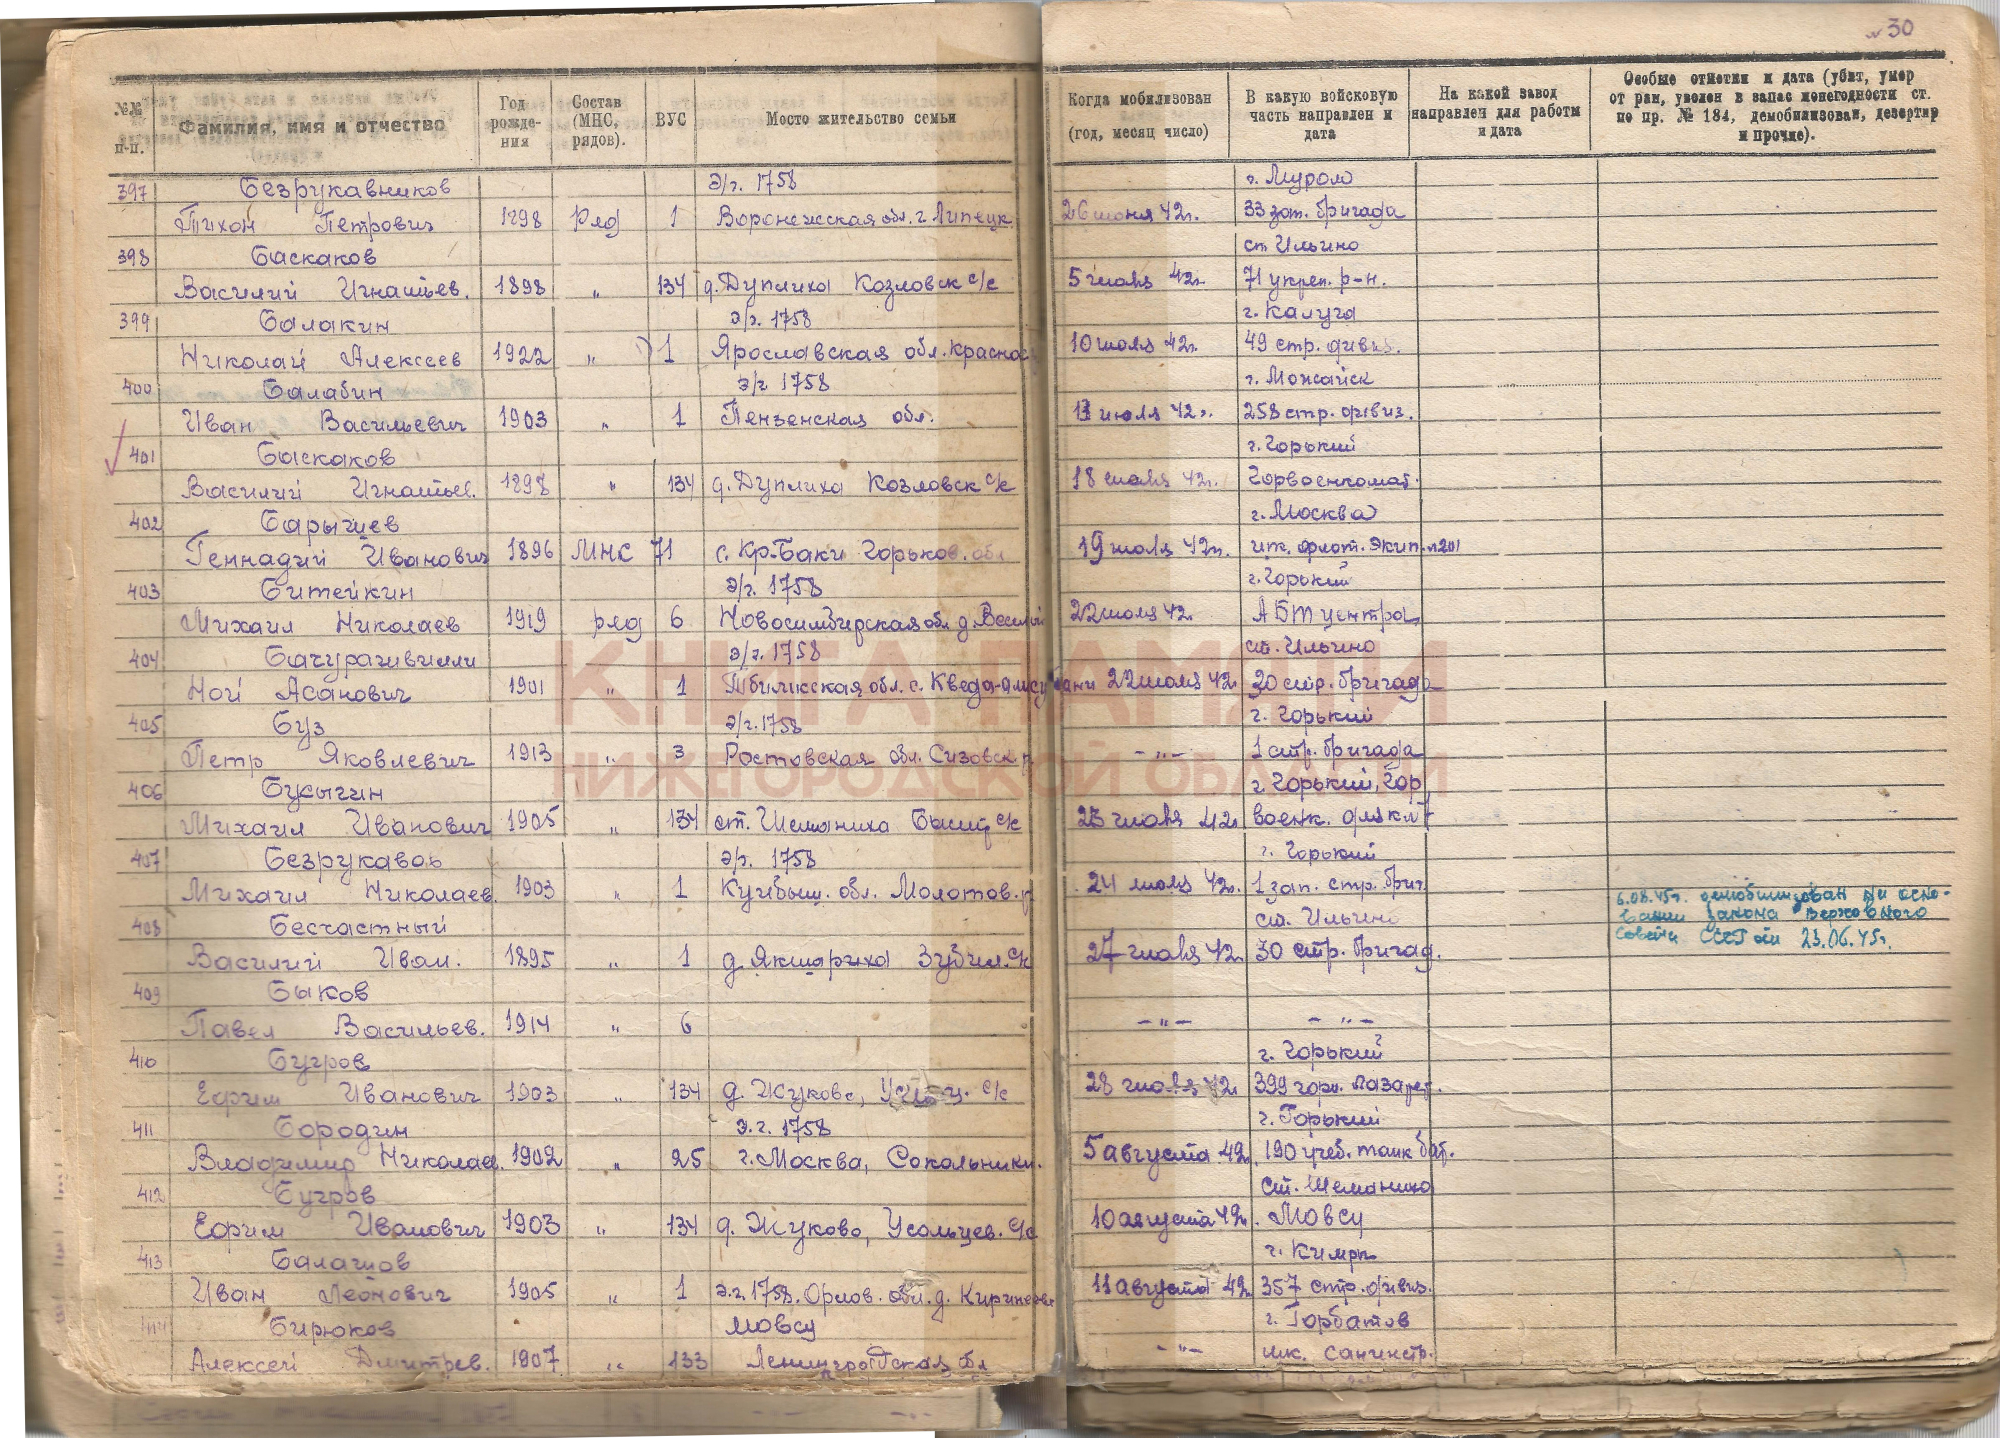 30
№№ п-п. Фамилия, имя и отчество Год рожде- ния Состав (МНС, рядов). ВУС Место жительство семьи Когда мобилизован (год, месяц число) В какую войсковую часть направлен и дата На какой завод направлен для работы и дата Особые отметки и дата (убит, умер от ран, уволен в запас понегодности ст. по пр. № 184, демобилизован, дезертир и прочие).
397 Безрукавников э/г. 1758 г. Муром
Тихон Петрович 1898 Ряд 1 Воронежская обл. г. Липецк 26 июня 42г. 33 зап. бригада
398 Баскаков ст Ильино
Василий Игнатьев. 1898 „ 134 д. Дуплиха Козловск с/с 5 июля 42г. 71 укреп. р-н.
399 Балакин э/г. 1758 г. Калуга
Николай Алексеев 1922 „ 1 Ярославская обл. 10 июля 42г. 49 стр. дивиз.
400 Балабин э/г 1758 г. Можайск
Иван Васильевич 1903 „ 1 Пензенская обл. 13 июля 42г. 258 стр. дивиз.
401 Баскаков г. Горький
Василий Игнатьев. 1898 „ 134 д. Дуплиха Козловск с/с 18 июля 42г. Горвоенкомат.
402 Барышев г. Москва
Геннадий Иванович 1896 МНС 71 с. Кр. Баки Горьков. обл 19 июля 42г. флот. экип.
403 Битейкин э/г. 1758 г. Горький
Михаил Николаев 1919 ряд 6 Новосимбирская обл д. 22 июля 42г. АБТ центра
404 Бачурашвили э/г. 1758 ст. Ильино
Ной Асанович 1901 „ 1 Тбилисская обл. с. 22 июля 42 30 стр. бригада
405 Буз э/г. 1758 г. Горький
Петр Яковлевич 1913 „ 3 Ростовская обл. Сизовск р -„- 1 стр. бригада
406 Бусыгин г. Горький, Гор
Михаил Иванович 1905 „ 134 ст. Шеманиха с/с 23 июля 42г. военк. для
407 Безрукавов э/г. 1758 г. Горький
Михаил Николаев. 1903 „ 1 Куйбыш. обл. Молотов. р 24 июля 42г. 1 зап. стр. бриг. 6.08.45г. демобилизован на осно-
408 Бесчастный ст. Ильино вании закона Верховного
Василий Иван. 1895 „ 1 д. Якшариха Зубил. с/с 27 июля 42г. 30 стр. бригад. Совета СССР от 23.06.45г.
409 Быков
Павел Васильев. 1914 „ 6 -„- -„-
410 Бугров г. Горький
Ефрем Иванович 1903 „ 134 д. Жуково, с/с 28 июля 42г. 399 лазарет.
411 Бородин э.г. 1758 г. Горький
Владимир Николаев. 1902 „ 25 г. Москва, Сокольники. 5 августа 42г. 190 учеб. танк бат.
412 Бугров ст. Шеманиха
Ефрем Иванович 1903 „ 134 д. Жуково, Усольцев. с/с 10 августа 42г. Мовсу
413 Балашов г. Кимры
Иван Леонович 1905 „ 1 э.г. 1758. Орлов. обл. д. 11 августа 42г. 357 стр. дивиз.
414 Бирюков Мовсу г. Горбатов
Алексей Дмитрев. 1907 „ 133 Ленинградская обл -„- шк. санинстр.
КНИГА ПАМЯТИ
НИЖЕГОРОДСКОЙ ОБЛАСТИ